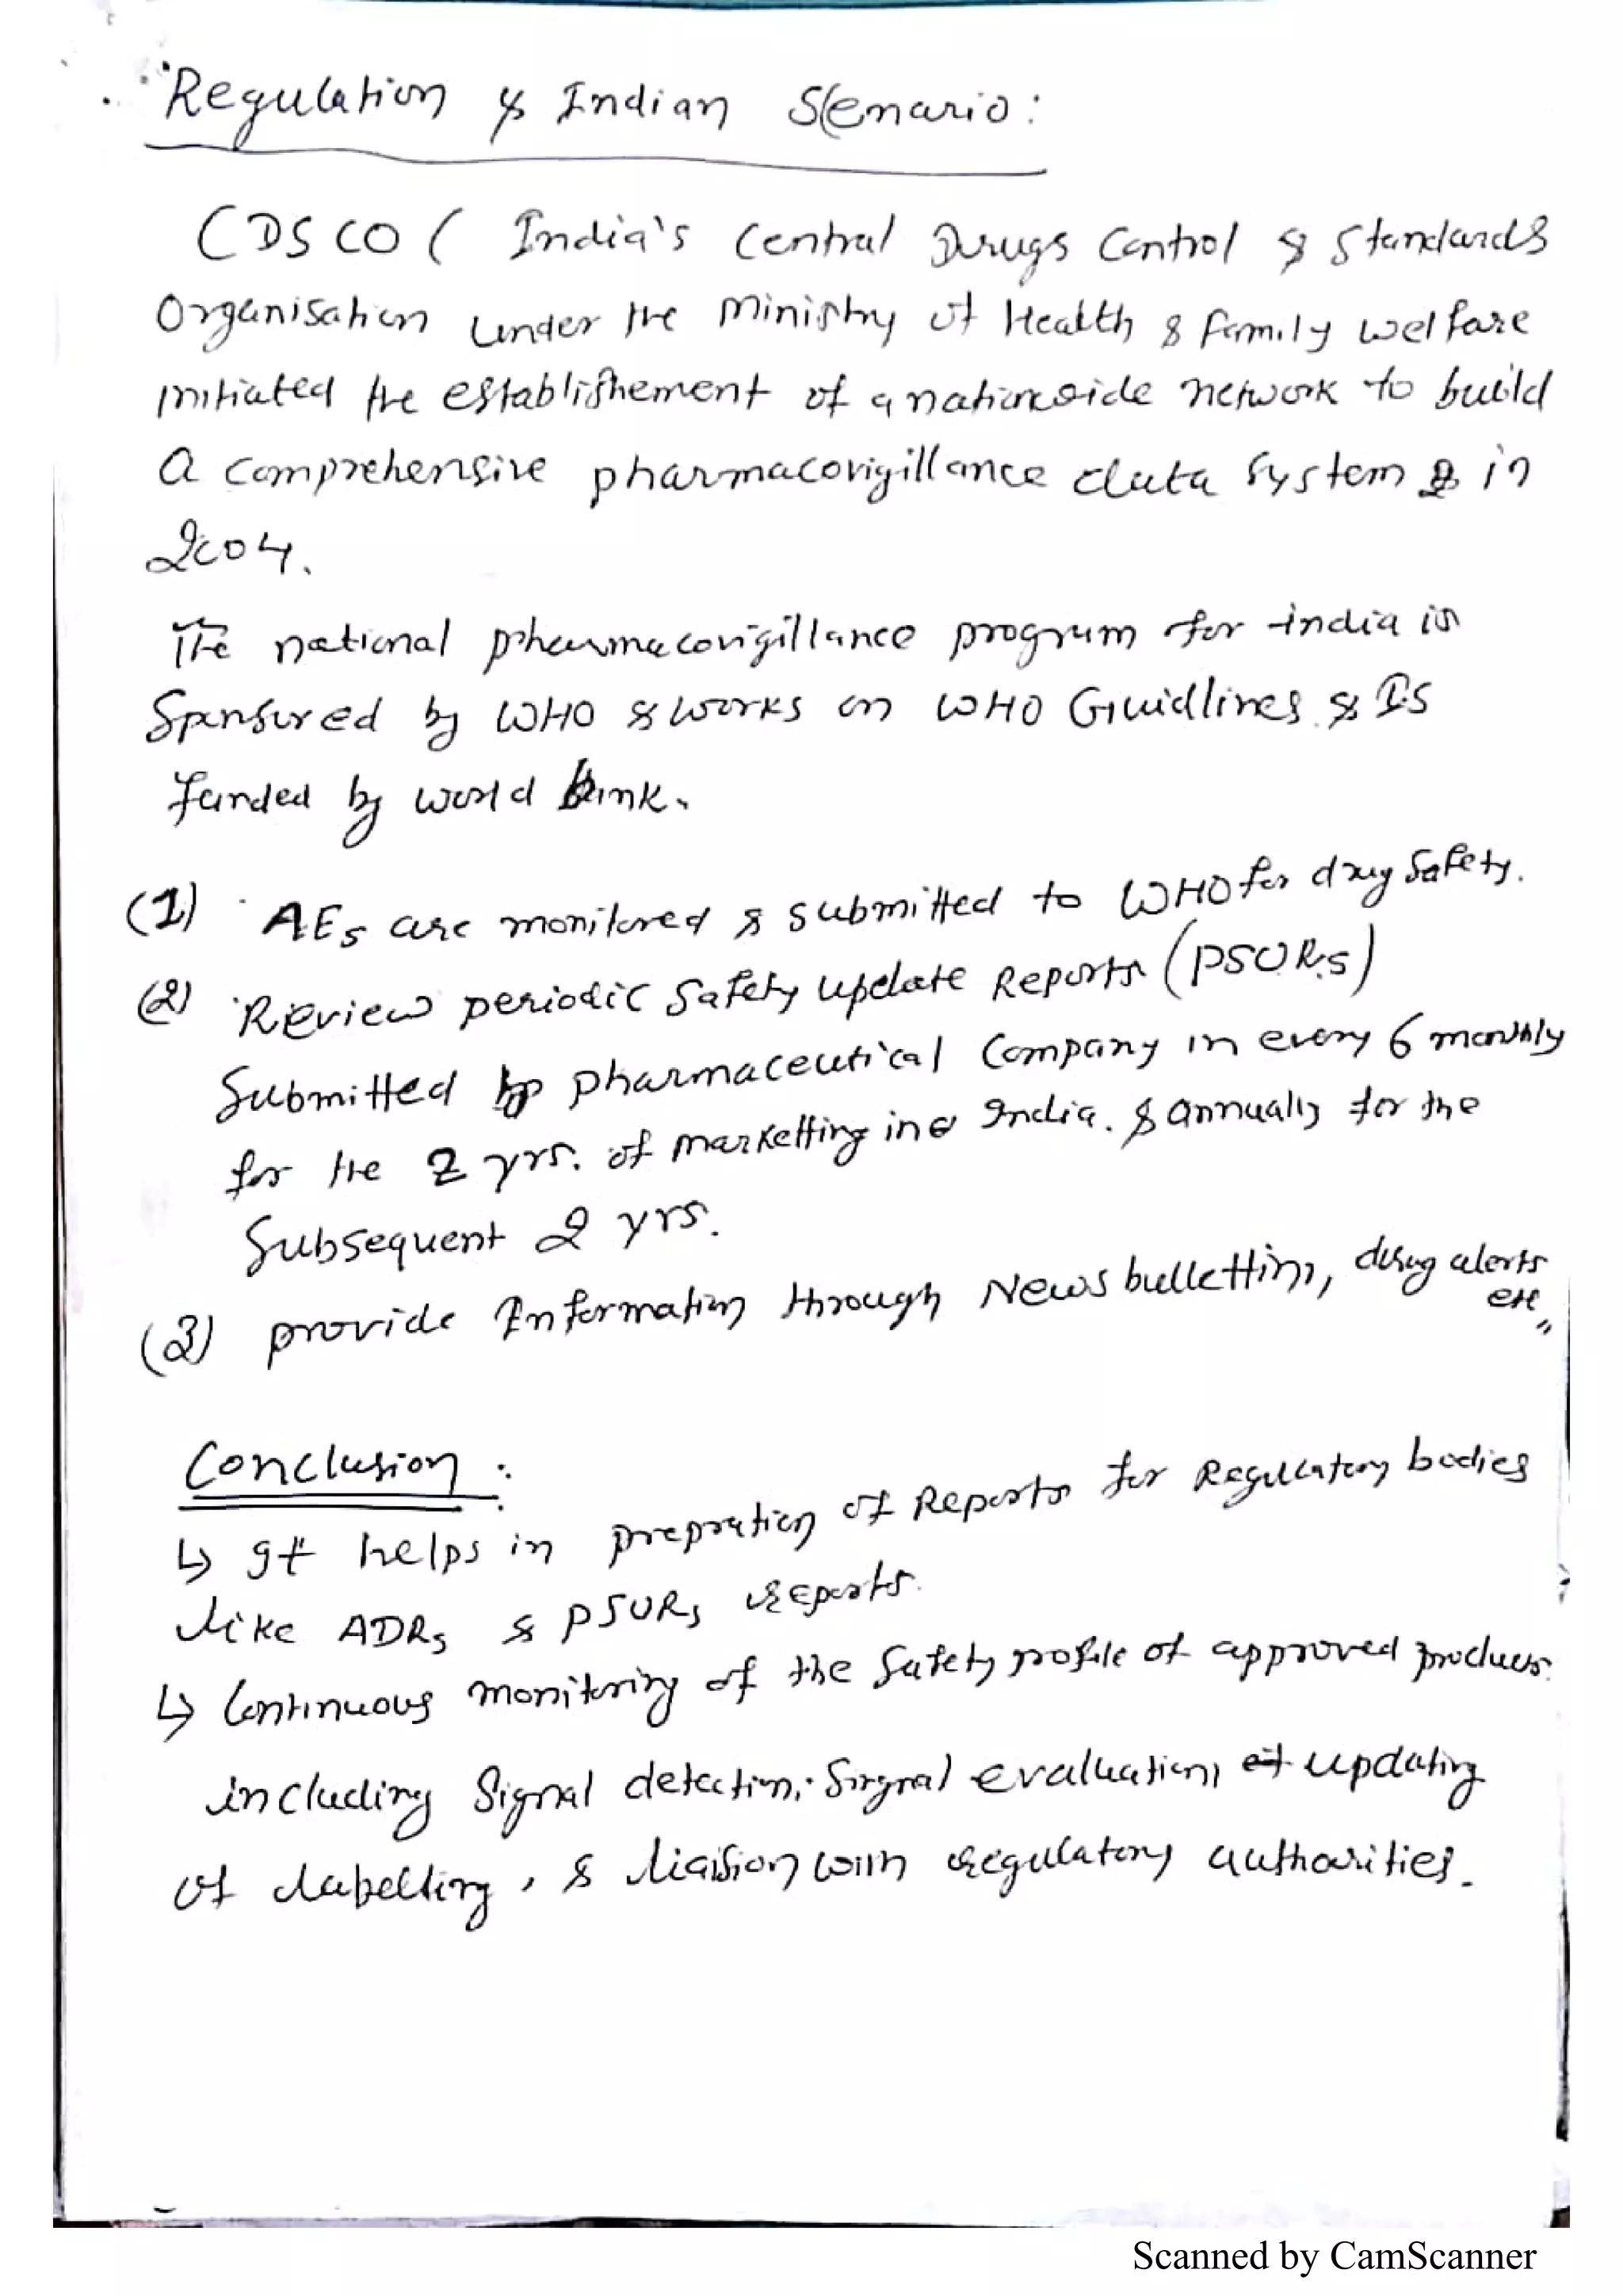 Regulation & Indian Scenario:
CDSCO ( India's Central Drugs Control & Standards
Organisation under the ministry of Health & family welfare
initiated the establishement of a nationwide network to build
a comprehensive pharmacovigillance data system & in
2004.
The national pharmacovigillance program for india is
Sponsored by WHO & works on WHO Guidlines & Is
funded by world bank.
(1) AEs are monitored & submitted to WHO for drug safety.
(2) Review periodic safety update Reports (PSURs)
Submitted by pharmaceutical Company in every 6 monthly
for the 2 yrs. of marketting in India. & annually for the
Subsequent 2 yrs.
(3) provide Information through News bullettin, drug alerts
etc"
Conclusion :
↳ It helps in prepration of Reports for Regulatory bodies
like ADRs & PSURs reports.
↳ Continuous monitoring of the safety profile of approved products
including Signal detection, Signal evaluation, updating
of labelling, & liaision with regulatory authorities.
Scanned by CamScanner